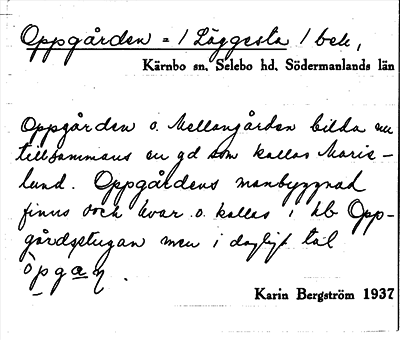 Oppgården = / Läggesta / beb.,
Kärnbo sn, Selebo hd, Södermanlands län
Oppgården o. Mellangården bilda nu
tillsammans en gd som kallas Marie-
lund. Oppgårdens manbyggnad
finns dock kvar o. kallas i kb Opp-
gårdsstugan men i dagligt tal
Karin Bergström 1937